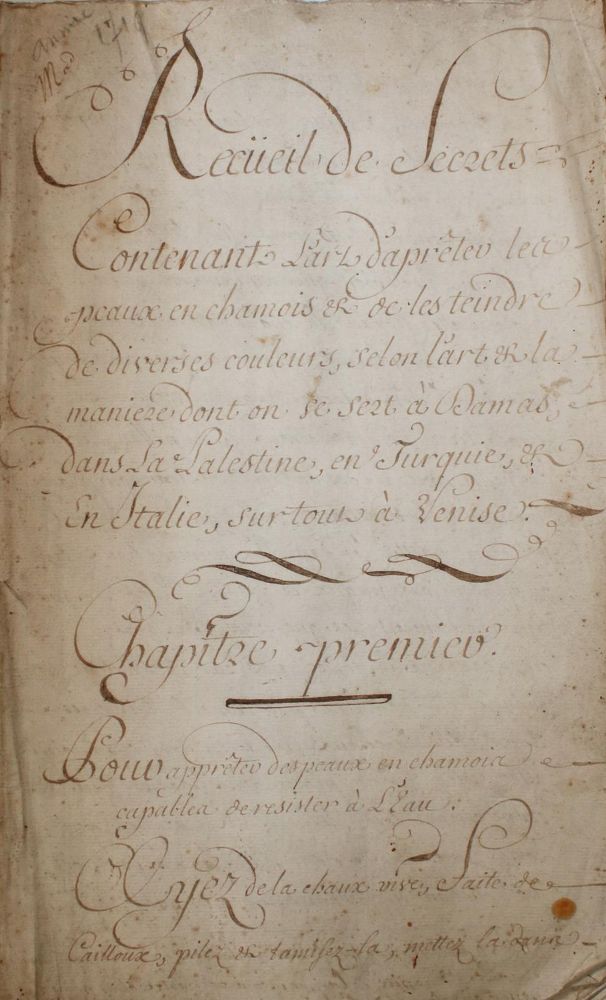 Année
Mad 1719
Recüeil de Secrets
Contenant L'art d'aprêter les
peaux en chamois & de les teindre
de diverses couleurs, selon l'art & la
maniere dont on se sert à Damas,
dans La Palestine, en Turquie, &
En Italie, surtout à Venise.
Chapitre premier.
Pour apprêter des peaux en chamois
capables de resister à L'Eau :
Ayez de la chaux vive, faite de
Cailloux, pilez & tamisez-la, mettez la dans